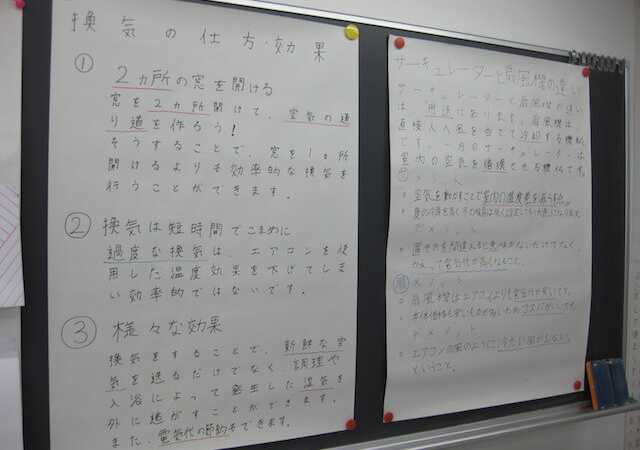 換気の仕方・効果
① 2ヵ所の窓を開ける
窓を2ヵ所開けて、空気の通
り道を作ろう!
そうすることで、窓を1ヵ所
開けるよりも効率的な換気を
行うことができます。
② 換気は短時間でこまめに
過度な換気は、エアコンを使
用した温度効果を下げてしま
い効率的ではないです。
③ 様々な効果
換気をすることで、新鮮な空
気を送るだけでなく、調理や
入浴によって発生した湿気を
外に逃がすことができます。
また、電気代の節約もできます。
サーキュレーターと扇風機の違い
サーキュレーターと扇風機の違い
は、用途にあります。扇風機は
直接人へ風を当てて冷却する機械
です。一方のサーキュレーターは
室内の空気を循環させる機械です。
サ メリット
○ 空気を動かすことで室内の温度差を減らす点。
○ 夏の冷房を
デメリット
○ 置き方を間違えると意味がないだけでなく、
かえって電気代が高くなること。
扇 メリット
○ 扇風機はエアコンよりも電気代が安いです。
○ 本体価格も安いものが多いためコスパがいいです。
デメリット
○ エアコンの風のように冷たい風が出ない。
ということ。